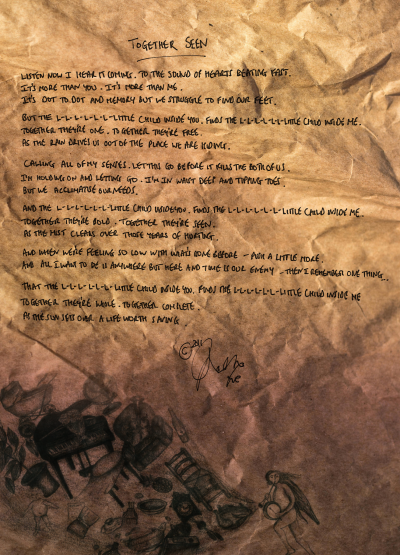 TOGETHER SEEN
LISTEN NOW I HEAR IT COMING. TO THE SOUND OF HEARTS BEATING FAST.
IT'S MORE THAN YOU. IT'S MORE THAN ME.
IT'S DOT TO DOT AND MEMORY BUT WE STRUGGLE TO FIND OUR FEET.
BUT THE L-L-L-L-L-LITTLE CHILD INSIDE YOU. FINDS THE L-L-L-L-L-LITTLE CHILD INSIDE ME.
TOGETHER THEY'RE ONE. TOGETHER THEY'RE FREE.
AS THE RAIN DRIVES US OUT OF THE PLACE WE ARE HIDING.
CALLING ALL OF MY SENSES. LET THIS GO BEFORE IT KILLS THE BOTH OF US.
I'M HOLDING ON AND LETTING GO. I'M IN WAIST DEEP AND TIPPING TOES.
BUT WE ACCLIMATISE OUR NEEDS.
AND THE L-L-L-L-L-LITTLE CHILD INSIDE YOU. FINDS THE L-L-L-L-L-LITTLE CHILD INSIDE ME.
TOGETHER THEY'RE BOLD. TOGETHER THEY'RE SEEN.
AS THE MIST CLEARS OVER THOSE YEARS OF HURTING.
AND WHEN WE'RE FEELING SO LOW WITH WHAT'S GONE BEFORE - PUSH A LITTLE MORE.
AND ALL I WANT TO BE IS ANYWHERE BUT HERE AND TIME IS OUR ENEMY - THEN I REMEMBER ONE THING..
THAT THE L-L-L-L-L-LITTLE CHILD INSIDE YOU. FINDS THE L-L-L-L-L-LITTLE CHILD INSIDE ME
TOGETHER THEY'RE WHOLE. TOGETHER COMPLETE.
AS THE SUN SETS OVER A LIFE WORTH SAVING
©